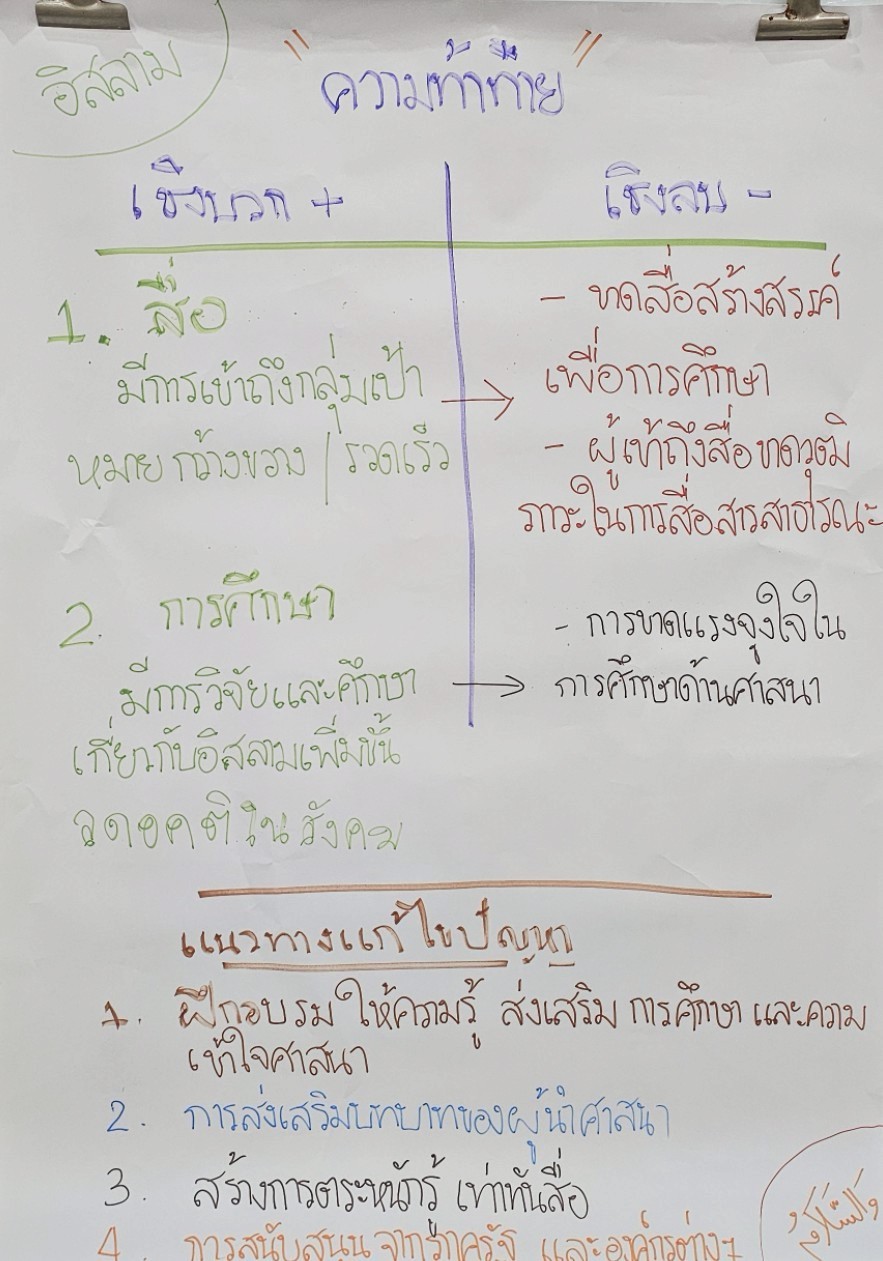 อิสลาม
"ความท้าทาย"
เชิงบวก +
เชิงลบ -
1. สื่อ
มีการเข้าถึงกลุ่มเป้า
หมายกว้างขวาง / รวดเร็ว
→ - ขาดสื่อสร้างสรรค์
เพื่อการศึกษา
- ผู้เข้าถึงสื่อขาดวุฒิ
ภาวะในการสื่อสารสาธารณะ
2. การศึกษา
มีการวิจัยและศึกษา
เกี่ยวกับอิสลามเพิ่มขึ้น
ลดอคติในสังคม
→ - การขาดแรงจูงใจใน
การศึกษาด้านศาสนา
แนวทางแก้ไขปัญหา
1. ฝึกอบรม ให้ความรู้ ส่งเสริม การศึกษา และความ
เข้าใจศาสนา
2. การส่งเสริมบทบาทของผู้นำศาสนา
3. สร้างการตระหนักรู้ เท่าทันสื่อ
4. การสนับสนุน จากภาครัฐ และองค์กรต่างๆ